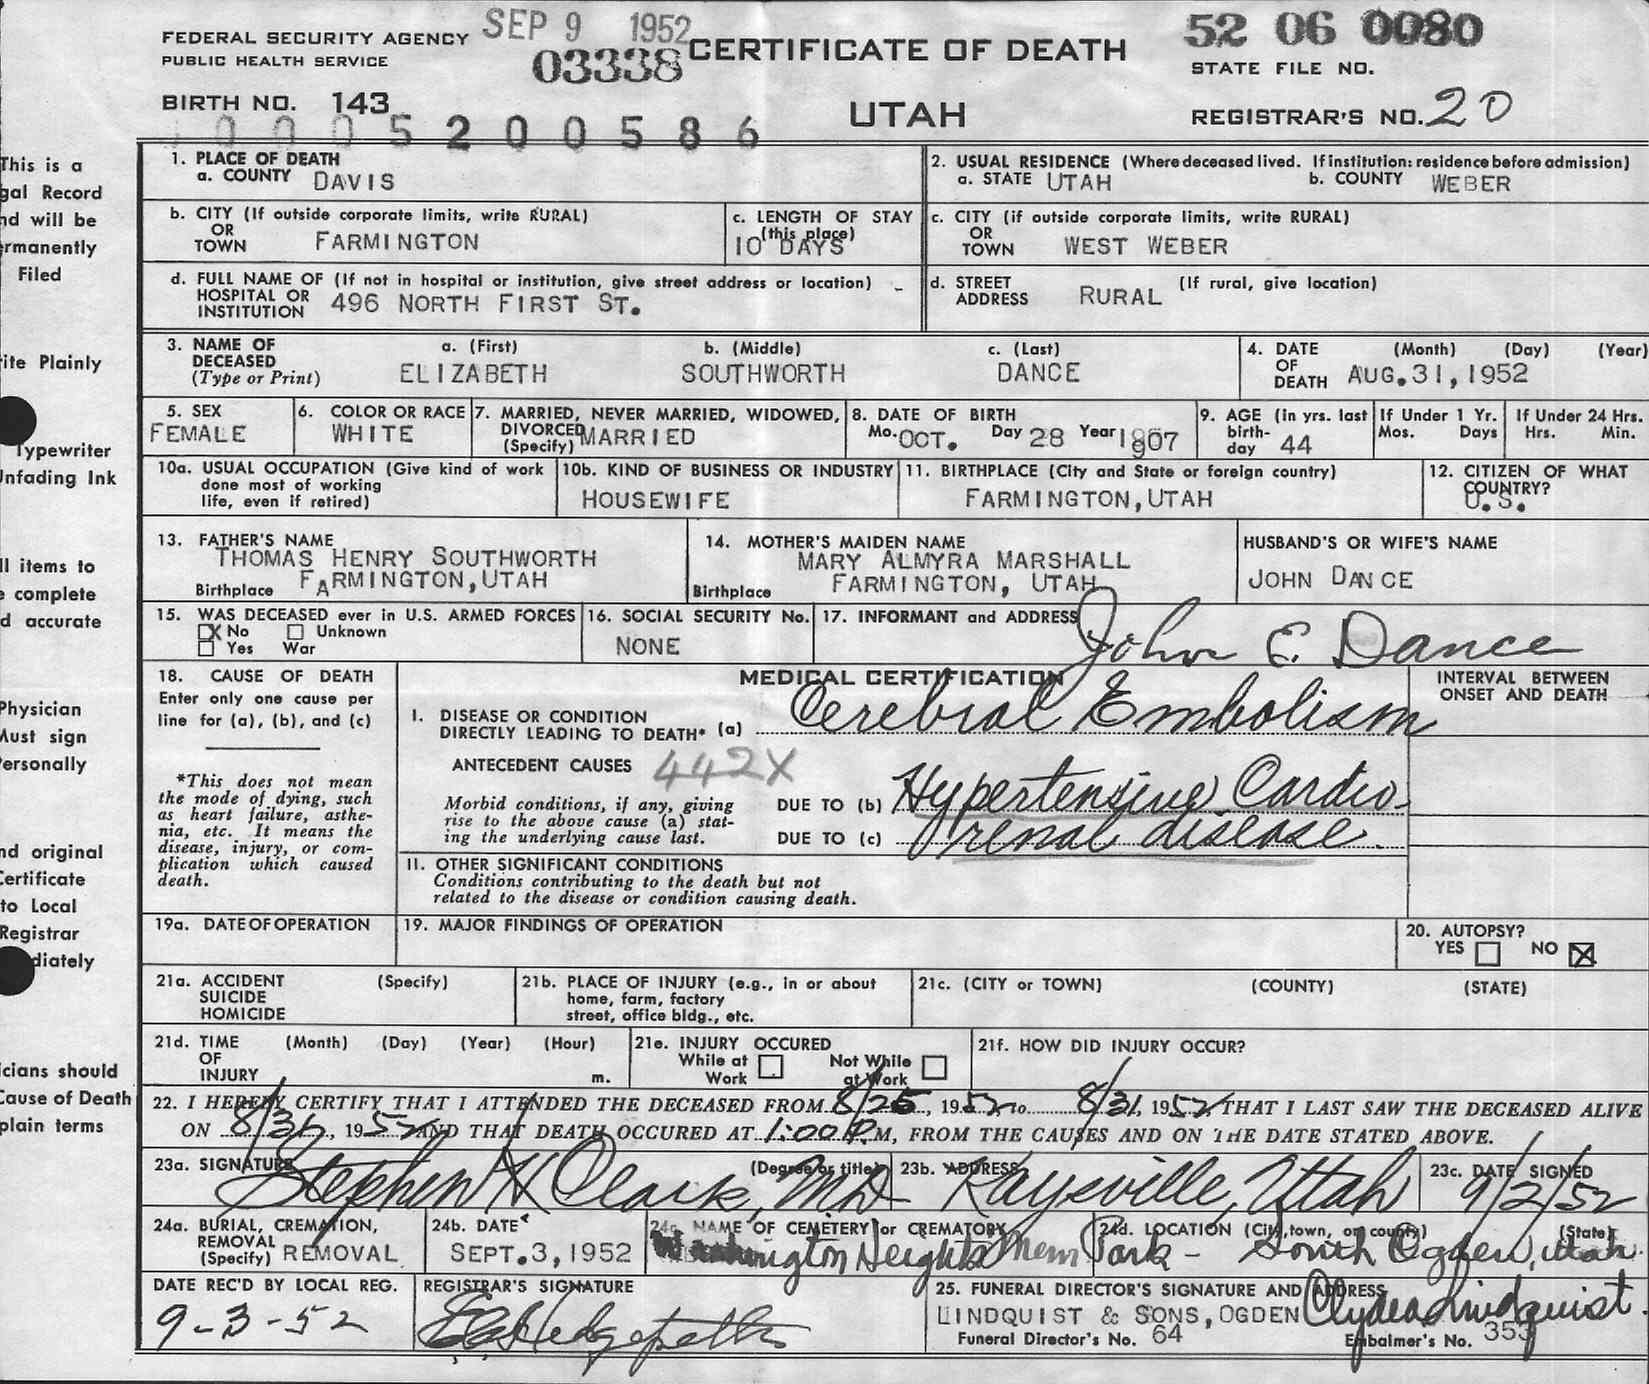 SEP 9 1952
52 06 0080
FEDERAL SECURITY AGENCY
PUBLIC HEALTH SERVICE
03338
CERTIFICATE OF DEATH
STATE FILE NO.
BIRTH NO. 143
UTAH
REGISTRAR'S NO. 20
0 0 0 5 2 0 0 5 8 6
This is a
gal Record
nd will be
ermanently
Filed
rite Plainly
Typewriter
Unfading Ink
ll items to
e complete
d accurate
Physician
Must sign
Personally
nd original
Certificate
to Local
Registrar
diately
icians should
Cause of Death
plain terms
1. PLACE OF DEATH
a. COUNTY DAVIS
2. USUAL RESIDENCE (Where deceased lived. If institution: residence before admission)
a. STATE UTAH b. COUNTY WEBER
b. CITY (If outside corporate limits, write RURAL)
OR
TOWN FARMINGTON
c. LENGTH OF STAY
(this place)
10 DAYS
c. CITY (if outside corporate limits, write RURAL)
OR
TOWN WEST WEBER
d. FULL NAME OF (If not in hospital or institution, give street address or location)
HOSPITAL OR
INSTITUTION 496 NORTH FIRST ST.
d. STREET (If rural, give location)
ADDRESS RURAL
3. NAME OF DECEASED
(Type or Print)
a. (First) b. (Middle) c. (Last)
ELIZABETH SOUTHWORTH DANCE
4. DATE OF DEATH (Month) (Day) (Year)
AUG. 31, 1952
5. SEX
FEMALE
6. COLOR OR RACE
WHITE
7. MARRIED, NEVER MARRIED, WIDOWED,
DIVORCED
(Specify) MARRIED
8. DATE OF BIRTH
Mo. OCT. Day 28 Year 1907
9. AGE (in yrs. last
birth-
day 44
If Under 1 Yr.
Mos. Days
If Under 24 Hrs.
Hrs. Min.
10a. USUAL OCCUPATION (Give kind of work
done most of working
life, even if retired)
10b. KIND OF BUSINESS OR INDUSTRY
HOUSEWIFE
11. BIRTHPLACE (City and State or foreign country)
FARMINGTON, UTAH
12. CITIZEN OF WHAT
COUNTRY?
U.S.
13. FATHER'S NAME
THOMAS HENRY SOUTHWORTH
Birthplace FARMINGTON, UTAH
14. MOTHER'S MAIDEN NAME
MARY ALMYRA MARSHALL
Birthplace FARMINGTON, UTAH
HUSBAND'S OR WIFE'S NAME
JOHN DANCE
15. WAS DECEASED ever in U.S. ARMED FORCES
X No Unknown
Yes War
16. SOCIAL SECURITY No.
NONE
17. INFORMANT and ADDRESS
John E. Dance
18. CAUSE OF DEATH
Enter only one cause per
line for (a), (b), and (c)
*This does not mean
the mode of dying, such
as heart failure, asthe-
nia, etc. It means the
disease, injury, or com-
plication which caused
death.
MEDICAL CERTIFICATION
INTERVAL BETWEEN
ONSET AND DEATH
I. DISEASE OR CONDITION
DIRECTLY LEADING TO DEATH* (a) Cerebral Embolism
ANTECEDENT CAUSES 442X
Morbid conditions, if any, giving
rise to the above cause (a) stat-
ing the underlying cause last.
DUE TO (b) Hypertensive Cardio-
DUE TO (c) renal disease.
II. OTHER SIGNIFICANT CONDITIONS
Conditions contributing to the death but not
related to the disease or condition causing death.
19a. DATE OF OPERATION
19. MAJOR FINDINGS OF OPERATION
20. AUTOPSY?
YES NO X
21a. ACCIDENT (Specify)
SUICIDE
HOMICIDE
21b. PLACE OF INJURY (e.g., in or about
home, farm, factory
street, office bldg., etc.
21c. (CITY or TOWN) (COUNTY) (STATE)
21d. TIME (Month) (Day) (Year) (Hour)
OF
INJURY m.
21e. INJURY OCCURED
While at Work
Not While at Work
21f. HOW DID INJURY OCCUR?
22. I HEREBY CERTIFY THAT I ATTENDED THE DECEASED FROM 8/25, 1952 to 8/31, 1952 THAT I LAST SAW THE DECEASED ALIVE
ON 8/31, 1952 AND THAT DEATH OCCURED AT 1:00 P.M, FROM THE CAUSES AND ON THE DATE STATED ABOVE.
23a. SIGNATURE (Degree or title)
Stephen H Clark, MD
23b. ADDRESS
Kaysville, Utah
23c. DATE SIGNED
9/2/52
24a. BURIAL, CREMATION,
REMOVAL
(Specify) REMOVAL
24b. DATE
SEPT. 3, 1952
24c. NAME OF CEMETERY or CREMATORY
Washington Heights Mem Park -
24d. LOCATION (City, town, or county) (State)
South Ogden, Utah
DATE REC'D BY LOCAL REG.
9-3-52
REGISTRAR'S SIGNATURE
25. FUNERAL DIRECTOR'S SIGNATURE AND ADDRESS
LINDQUIST & SONS, OGDEN Clyde Lindquist
Funeral Director's No. 64
Embalmer's No. 353